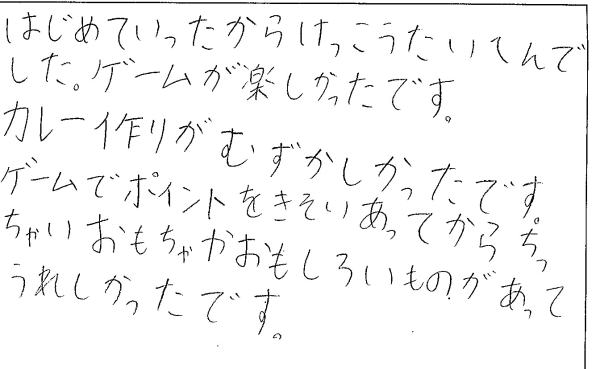 はじめていったからけっこうたいへんで
した。ゲームが楽しかったです。
カレー作りがむずかしかったです。
ゲームでポイントをきそいあってからちっ
ちゃいおもちゃかおもしろいものがあって
うれしかったです。